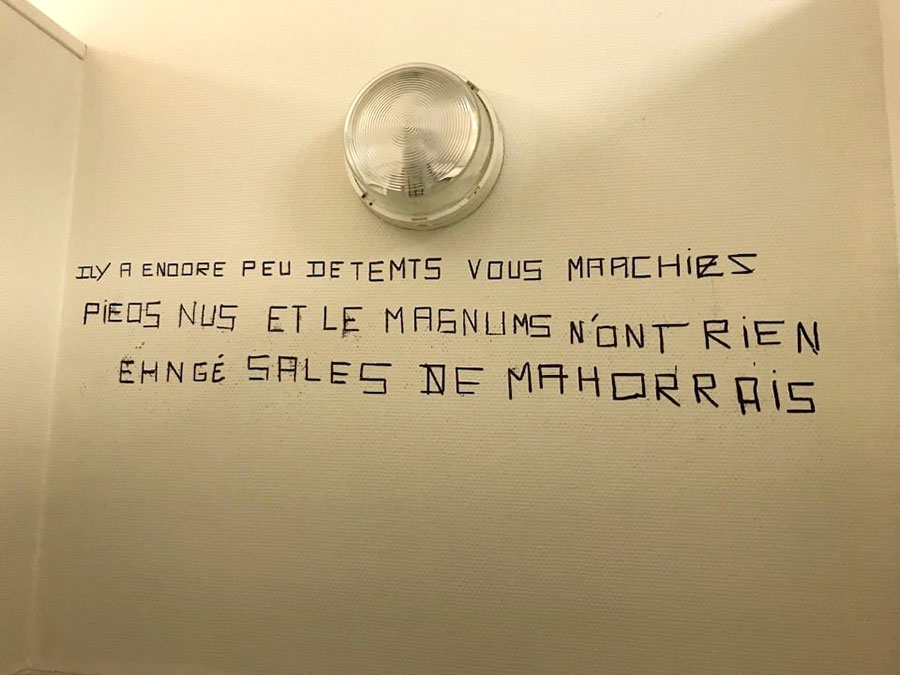 ILY A ENDORE PEU DETEMTS VOUS MARCHIES
PiEDS NUS ET LE MAGNUMS N'ONT RiEN
EHNGÉ SALES DE MAHORRAiS